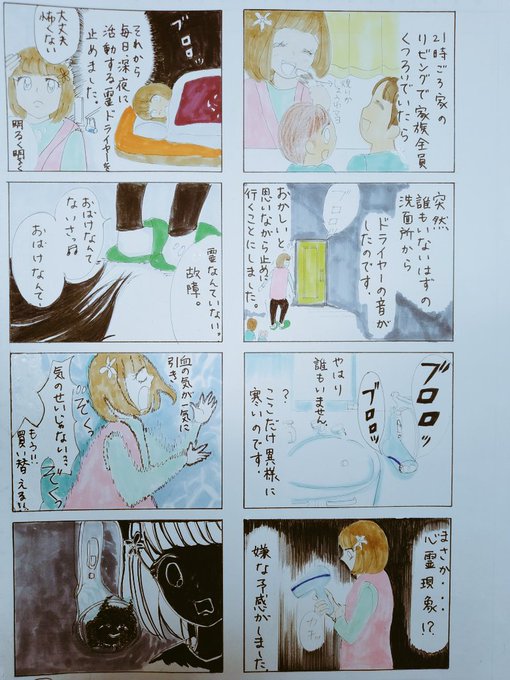 21時ごろ家の
リビングで家族全員
くつろいでいたら
突然
誰もいないはずの
洗面所から
ドライヤーの音が
したのです。
ブロロ
おかしいと
思いながら止めに
行くことにしました。
ブロロッ
ブロロッ
やはり
誰もいません。
ここだけ異様に
寒いのです。
?
まさか・・・
心霊現象!?
カチッ
嫌な予感がしました。
ブロロッ
それから
毎日深夜に
活動する霊ドライヤーを
止めました。
大丈夫
怖くない
明るく明るく
霊なんていない。
故障。
おばけなんて
ないさっ♪
おばけなんて、
血の気が一気に
引き
ぞくっ
気のせいじゃない??
ぞくっ
もう!!
買い替える!!